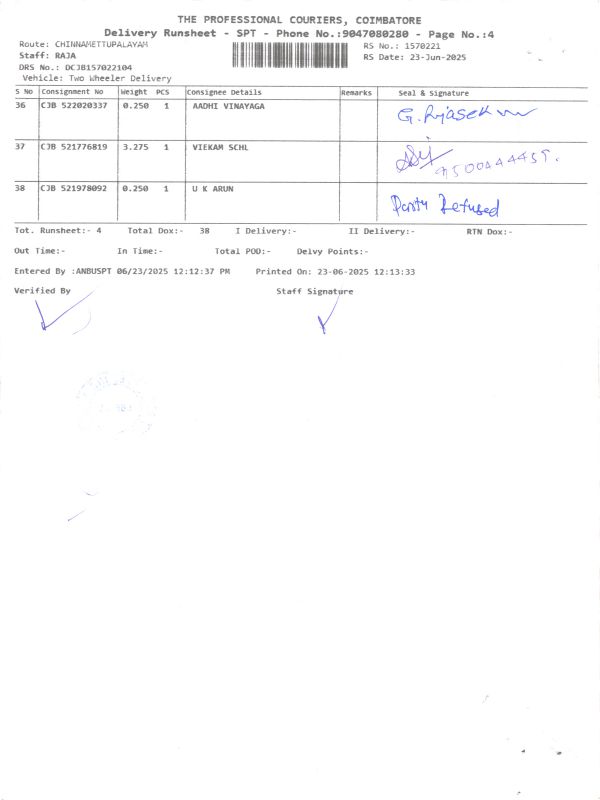 THE PROFESSIONAL COURIERS, COIMBATORE
Delivery Runsheet - SPT - Phone No.:9047080280 - Page No.:4
Route: CHINNAMETTUPALAYAM RS No.: 1570221
Staff: RAJA RS Date: 23-Jun-2025
DRS No.: DCJB157022104
Vehicle: Two Wheeler Delivery
S No Consignment No Weight PCS Consignee Details Remarks Seal & Signature
36 CJB 522020337 0.250 1 AADHI VINAYAGA
37 CJB 521776819 3.275 1 VIEKAM SCHL
38 CJB 521978092 0.250 1 U K ARUN Party Refused
Tot. Runsheet:- 4 Total Dox:- 38 I Delivery:- II Delivery:- RTN Dox:-
Out Time:- In Time:- Total POD:- Delvy Points:-
Entered By :ANBUSPT 06/23/2025 12:12:37 PM Printed On: 23-06-2025 12:13:33
Verified By Staff Signature